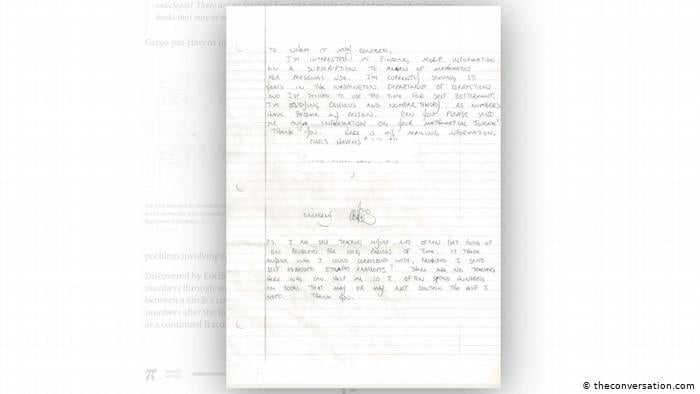 envelopes! There
books that may or m
Cargo put Havens in
TO WHOM IT MAY CONCERN,
I'M INTERESTED IN FINDING MORE INFORMATION
ON A SUBSCRIPTION TO ANNALS OF MATHEMATICS
FOR PERSONAL USE. I'M CURRENTLY SERVING 25
YEARS IN THE WASHINGTON DEPARTMENT OF CORRECTIONS
AND I'VE DECIDED TO USE THIS TIME FOR SELF BETTERMENT.
I'M STUDYING CALCULUS AND NUMBER THEORY, AS NUMBERS
HAVE BECOME MY PASSION. CAN YOU PLEASE SEND
ME ANY INFORMATION ON YOUR MATHEMATICAL JOURNAL?
THANK YOU. HERE IS MY MAILING INFORMATION.
CHRIS HAVENS
SINCERELY
P.S. I AM SELF TEACHING MYSELF AND OFTEN GET HUNG UP
ON PROBLEMS FOR LONG PERIODS OF TIME. IS THERE
ANYONE WHO I COULD CORRESPOND WITH, PROVIDED I SEND
SELF ADDRESSED STAMPED ENVELOPES? THERE ARE NO TEACHERS
HERE WHO CAN HELP ME SO I OFTEN SPEND HUNDREDS
ON BOOKS THAT MAY OR MAY NOT CONTAIN THE HELP I
NEED. THANK YOU.
problem involving c
Discovered by Eucli
numbers through se
between a circle's ci
numbers after the in
as a continued fracti
π =
© theconversation.com